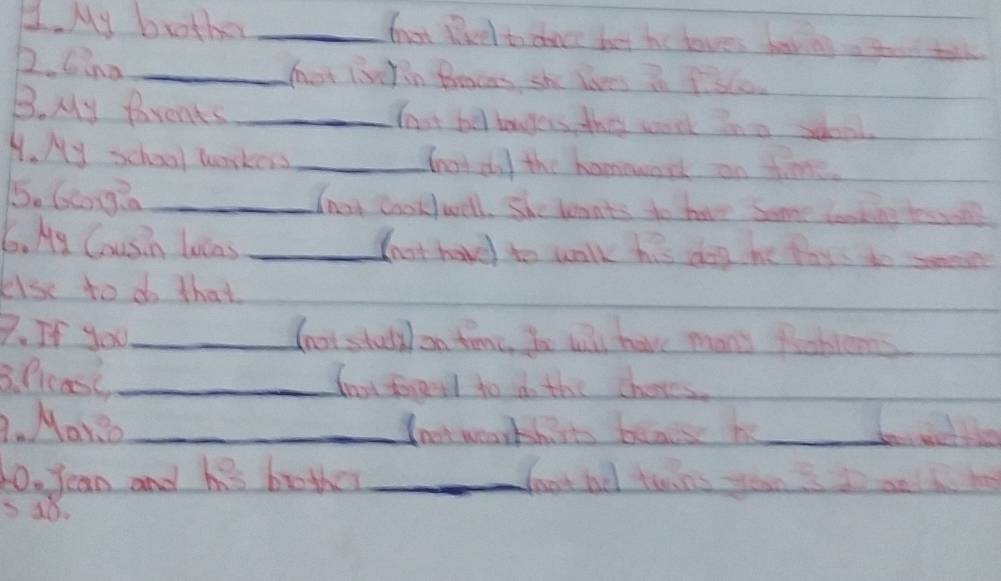 1. My brother ______ (not like) to dance but he loves having
2. Gina ______ (not live) in Caracas, she lives in
3. My parents ______ (not be) lawyers, they work in a school.
4. My school workers ______ (not do) the homework on time.
5. Georgia ______ (not cook) well. She wants to have some cooking lessons
6. My Cousin lucas ______ (not have) to walk his dog he pays to
else to do that.
7. If you ______ (not study) on time, you will have many problems
8. Please, ______ (not forget) to do the chores.
9. Mario ______ (not wear) shirts because he ______
10. Jean and his brother ______ (not be) twins
s 20.